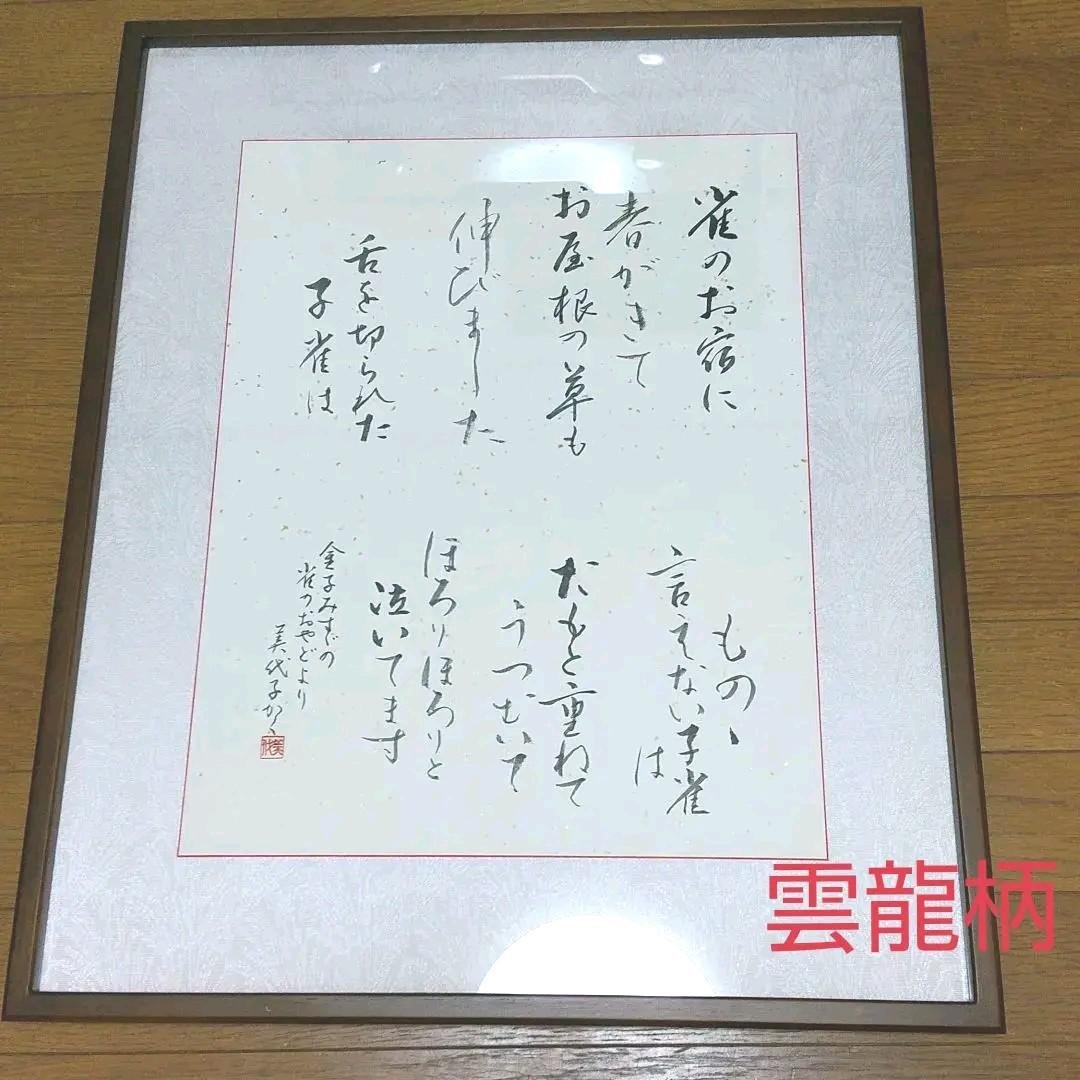 雀のお宿に
春がきて
お屋根の草も
伸びました
舌を切られた
子雀は
ものゝ
言えない子雀
は
たもと重ねて
うつむいて
ほろりほろりと
泣いてます
金子みすゞの
雀のおやどより
美代子かく
雲龍柄